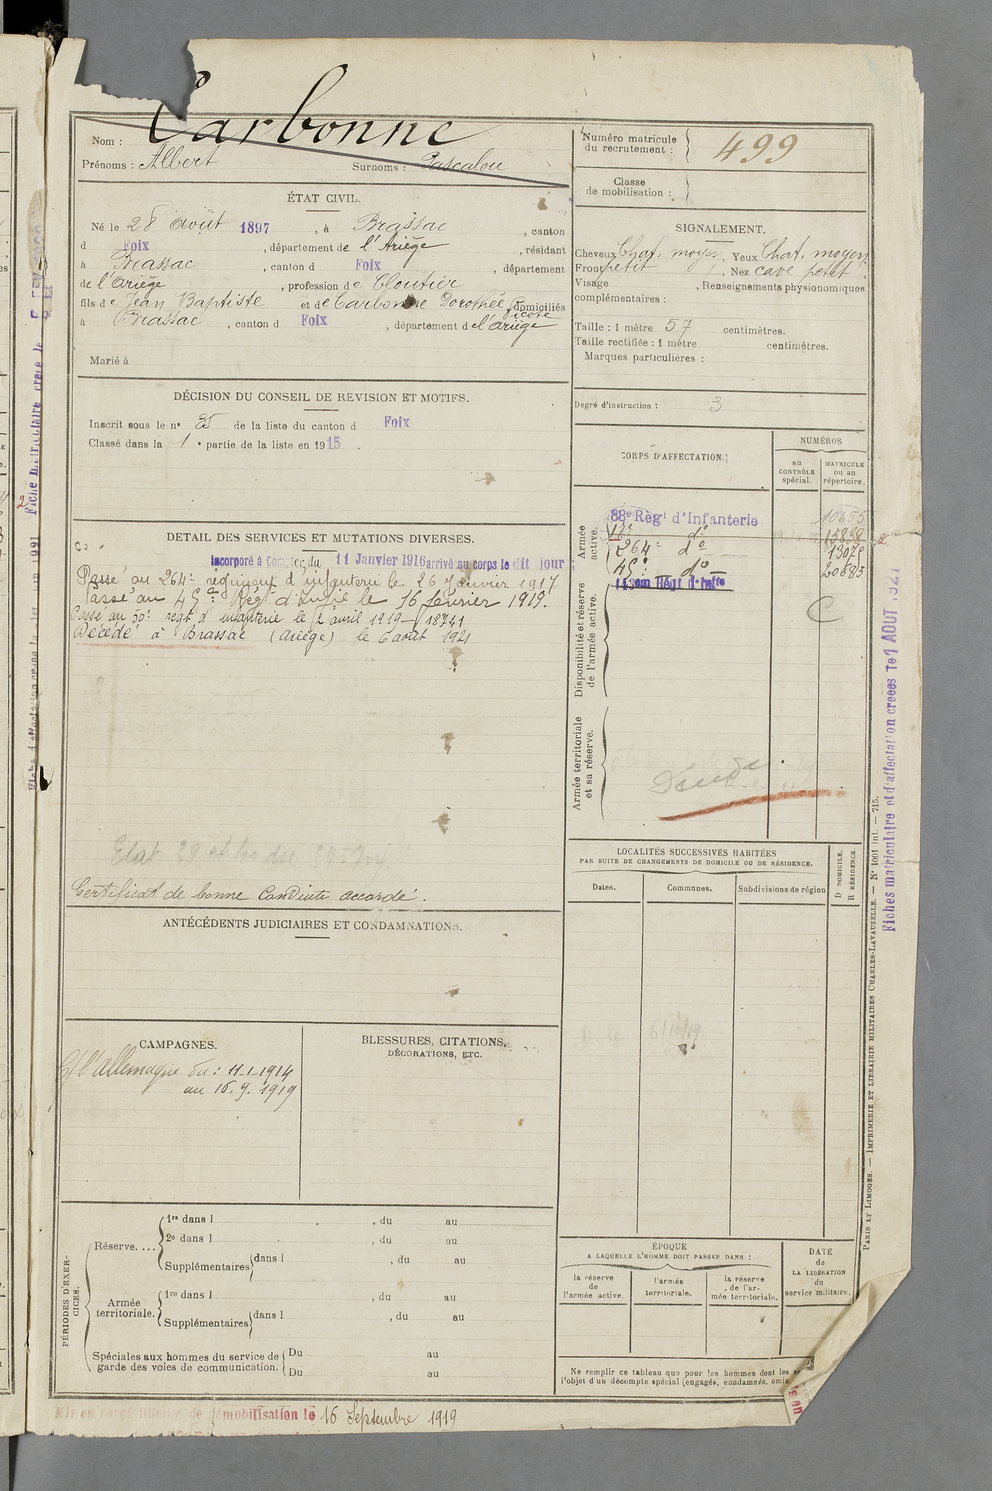 Carbonne
Nom :
Prénoms : Albert Surnoms : Pascalou
ÉTAT CIVIL.
Né le 28 août 1897, à Brassac, canton
d Foix, département de l'Ariège, résidant
à Brassac, canton d Foix, département
de l'Ariège, profession de Cloutier
fils de Jean Baptiste et de Carbonne Dorothée, domiciliés
à Brassac, canton d Foix, département de l'ariège
Marié à
DÉCISION DU CONSEIL DE REVISION ET MOTIFS.
Inscrit sous le n° 35 de la liste du canton d Foix
Classé dans la 1e partie de la liste en 1915.
DÉTAIL DES SERVICES ET MUTATIONS DIVERSES.
Incorporé à Compter du 11 Janvier 1916 arrivé au corps le dit jour
Passé au 264e régiment d'infanterie le 26 Janvier 1917
Passé au Régt d'Infie le 16 février 1919.
Passé au 50e régt d'infanterie le 2 avril 1919 — 18741
Décédé à Brassac (Ariège) le 6 août 1921
Certificat de bonne Conduite accordé.
ANTÉCÉDENTS JUDICIAIRES ET CONDAMNATIONS.
CAMPAGNES.
l'allemagne du : 11-1-1914
au 16.9.1919
BLESSURES, CITATIONS,
DÉCORATIONS, ETC.
PÉRIODES D'EXERCICES.
Réserve....
1re dans l , du au
2e dans l , du au
Supplémentaires dans l , du au
Armée
territoriale.
1re dans l , du au
Supplémentaires dans l , du au
Spéciales aux hommes du service de
garde des voies de communication.
Du au
Du au
démobilisation le 16 Septembre 1919
Numéro matricule
du recrutement : 499
Classe
de mobilisation :
SIGNALEMENT.
Cheveux Chat. moyen, Yeux Chat. moyen
Front petit, Nez cave petit
Visage , Renseignements physionomiques
complémentaires :
Taille : 1 mètre 57 centimètres.
Taille rectifiée : 1 mètre centimètres.
Marques particulières :
Degré d'instruction : 3
CORPS D'AFFECTATION.
NUMÉROS
AU
CONTRÔLE
spécial.
MATRICULE
OU AU
répertoire.
Armée
active.
88e Régt d'Infanterie 10655
do 15838
264e do
do 20683
Régt d'Infie
C
Disponibilité et réserve
de l'armée active.
Armée territoriale
et sa réserve.
LOCALITÉS SUCCESSIVES HABITÉES
PAR SUITE DE CHANGEMENTS DE DOMICILE OU DE RÉSIDENCE.
Dates.
Communes.
Subdivisions de région
D DOMICILE.
R RÉSIDENCE.
ÉPOQUE
A LAQUELLE L'HOMME DOIT PASSER DANS :
la réserve
de
l'armée active.
l'armée
territoriale.
la réserve
de l'ar-
mée territoriale.
DATE
de
LA LIBÉRATION
du
service militaire.
Ne remplir ce tableau que pour les hommes dont les
l'objet d'un décompte spécial (engagés, condamnés, omis
Fiches matriculaire et d'affectation créées le 1 AOUT 1921
PARIS ET LIMOGES. — IMPRIMERIE ET LIBRAIRIE MILITAIRES CHARLES-LAVAUZELLE. — N° 1001 int. — 715.